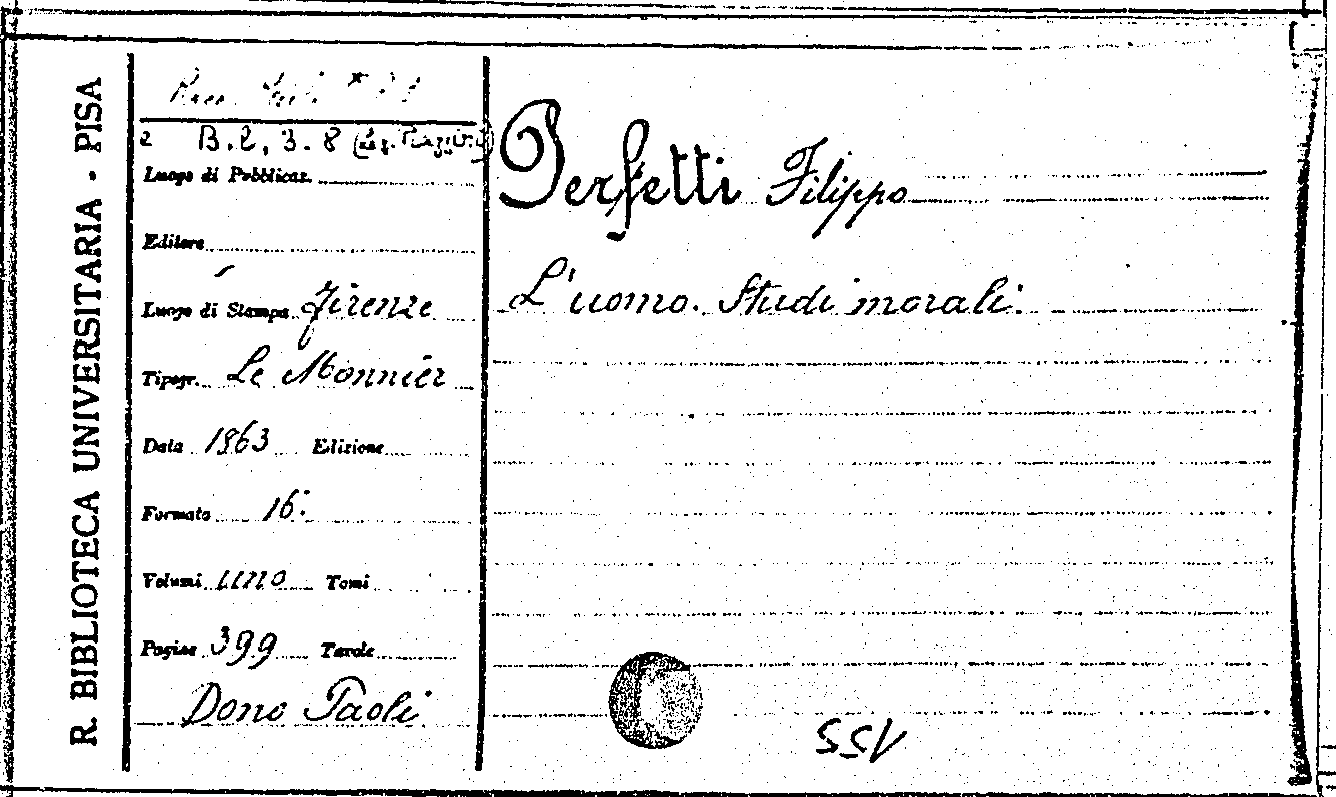 R. BIBLIOTECA UNIVERSITARIA - PISA
B.l, 3. 8
Luogo di Pubblicaz.
Editore
Luogo di Stampa Firenze
Tipogr. Le Monnier
Data 1863 Edizione
Formato 16.
Volumi uno Tomi
Pagine 399 Tavole
Dono Paoli
Perfetti Filippo
L'uomo. Studi morali.
155